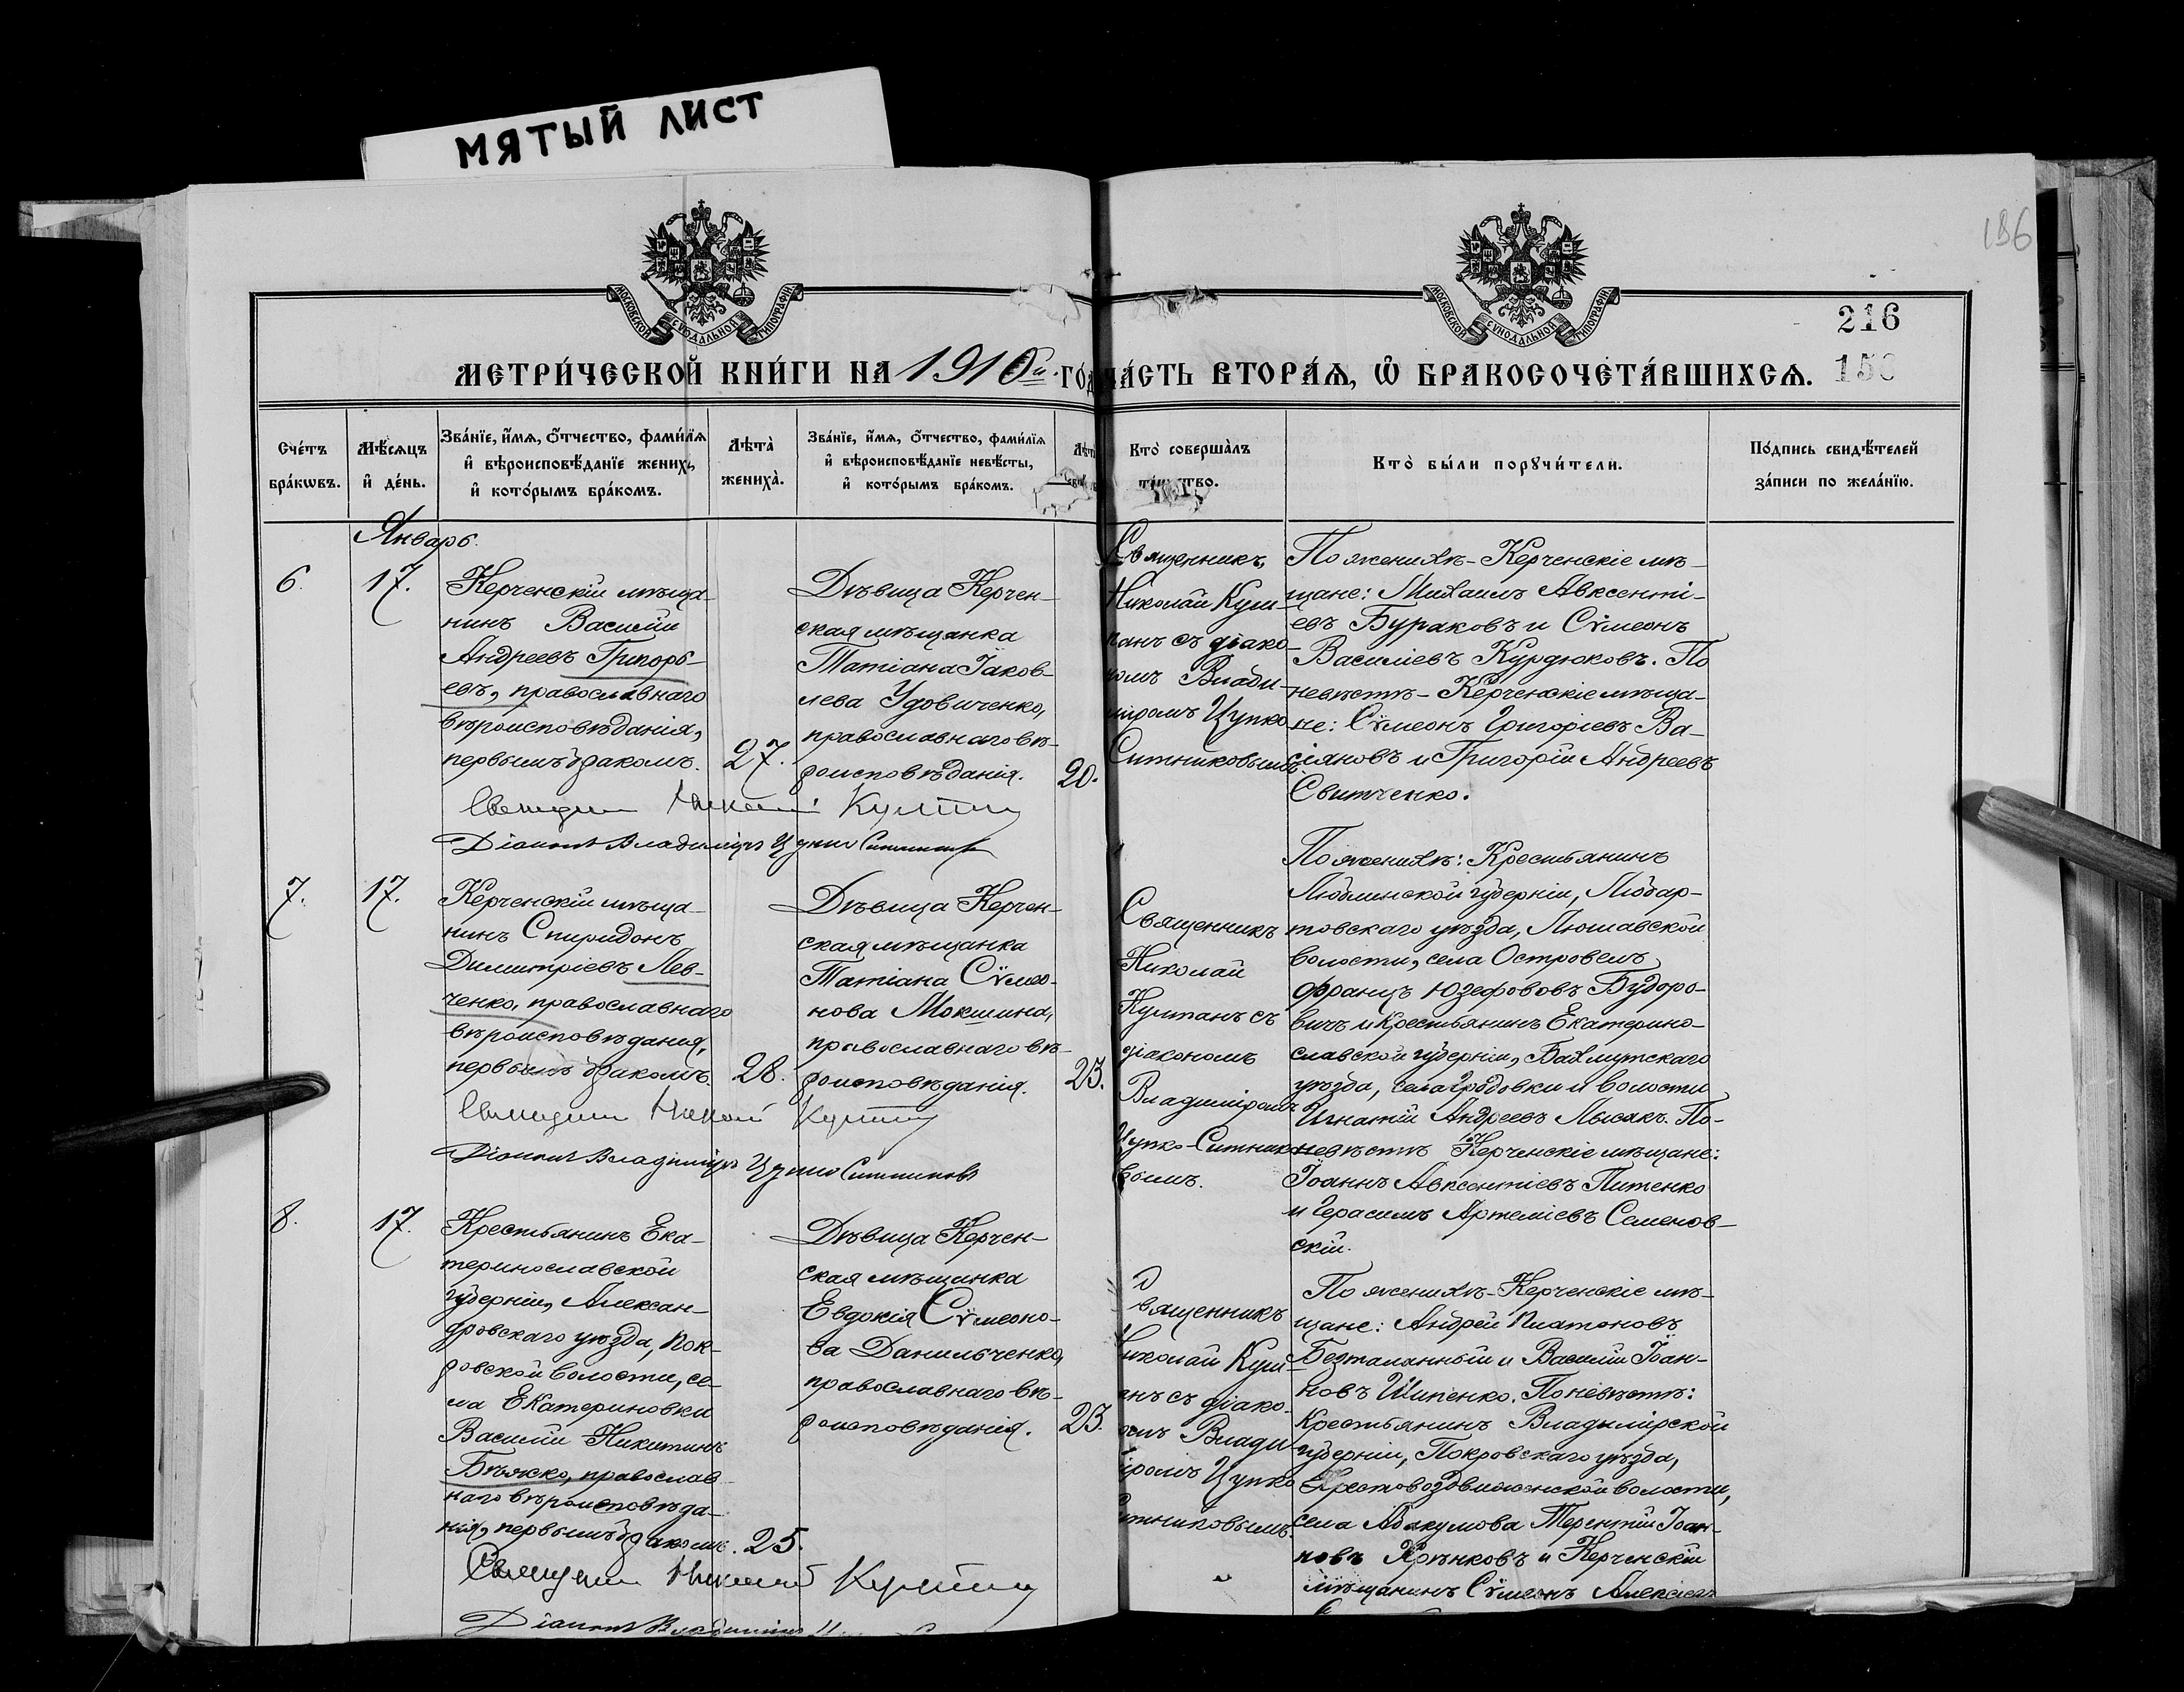 МЯТЫЙ ЛИСТ
196
МОСКОВСКОЙ СѴНОДАЛЬНОЙ ТИПОГРАФІИ
МОСКОВСКОЙ СѴНОДАЛЬНОЙ ТИПОГРАФІИ
216
150
МЕТРИ́ЧЕСКОЙ КНИ́ГИ НА 1910й ГО́Д
ЧА́СТЬ ВТОРА́Я, Ѡ БРАКОСОЧЕТА́ВШИХСЯ.
Сче́тъ
бра́кѡвъ.
Мѣ́сяцъ
и҆ де́нь.
Зва́нїе, и҆́мя, ѻ҆́тчество, фами́лїя
и҆ вѣроисповѣ́данїе жениха̀,
и҆ кото́рымъ бра́комъ.
Лѣта̀
жениха̀.
Зва́нїе, и҆́мя, ѻ҆́тчество, фами́лїя
и҆ вѣроисповѣ́данїе невѣ́сты,
и҆ кото́рымъ бра́комъ.
Кто̀ соверша̀лъ
Кто̀ бы́ли порꙋчи́тели.
По́дпись свидѣ́телей
за́писи по жела́нїю.
Январь.
6.
17.
Керченскій мѣща-
нинъ Василій
Андреевъ Григорь-
евъ, православнаго
вѣроисповѣданія,
первымъ бракомъ.
27.
Дѣвица Керчен-
ская мѣщанка
Татіана Іаков-
лева Удовиченко,
православнаго вѣ-
роисповѣданія.
20.
Священникъ
Николай Кул-
панъ съ діако-
номъ Влади-
міромъ Цупко
Ситниковымъ.
По женихѣ - Керченскіе мѣ-
щане: Михаилъ Авксенті-
евъ Бураковъ и Сѵмеонъ
Василіевъ Курдюковъ. По
невѣстѣ - Керченскіе мѣща-
не: Сѵмеонъ Григоріевъ Ва-
сіяновъ и Григорій Андреевъ
Свитченко.
Діаконъ Владиміръ Цупко Ситниковъ
7.
17.
Керченскій мѣща-
нинъ Спиридонъ
Димитріевъ Лев-
ченко, православнаго
вѣроисповѣданія,
первымъ бракомъ.
28.
Дѣвица Керчен-
ская мѣщанка
Татіана Сѵмео-
нова Мокшина,
православнаго вѣ-
роисповѣданія.
23.
Священникъ
Николай
Кулпанъ съ
діакономъ
Владиміромъ
Цупко-Ситнико-
вымъ.
По женихѣ: Крестьянинъ
Люблинской губерніи, Любар-
товскаго уѣзда, Люшавской
волости, села Островекъ
Францъ Юзефововъ Будоро-
вичъ и Крестьянинъ Екатерино-
славской губерніи, Бахмутскаго
уѣзда, села Гродовки и волости
Игнатій Андреевъ Лысакъ. По-
невѣстѣ Керченскіе мѣщане:
Іоаннъ Авксентіевъ Питенко
и Герасимъ Артеміевъ Семенов-
скій.
Діаконъ Владиміръ Цупко Ситниковъ
8.
17.
Крестьянинъ Ека-
теринославской
губерніи, Алексан-
дровскаго уѣзда, Пок-
ровской волости, се-
ла Екатериновки
Василій Никитинъ
Бѣжко, православ-
наго вѣроисповѣда-
нія, первымъ бракомъ.
25.
Дѣвица Керчен-
ская мѣщанка
Евдокія Сѵмеоно-
ва Данильченко,
православнаго вѣ-
роисповѣданія.
23.
вященникъ
Николай Кул-
анъ съ діако-
омъ Влади-
іромъ Цупко
итниковымъ.
По женихѣ - Керченскіе мѣ-
щане: Андрей Платоновъ
Безталанный и Василій Іоан-
новъ Шипенко. По невѣстѣ:
Крестьянинъ Владимірской
губерніи, Покровскаго уѣзда,
Крестовоздвиженской волости,
села Абакумова Терентій Іоан-
новъ Хрѣнковъ и Керченскій
мѣщанинъ Сѵмеонъ Алексіевъ
Діаконъ Владиміръ